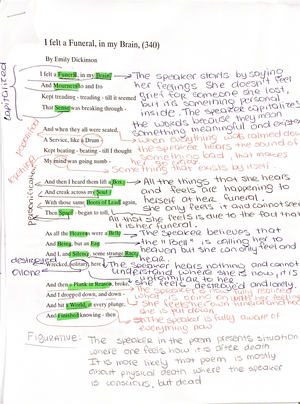 I felt a Funeral, in my Brain, (340)
By Emily Dickinson
capitalized
I felt a Funeral, in my Brain,
And Mourners to and fro
Kept treading - treading - till it seemed
That Sense was breaking through -
The speaker starts by saying
her feelings. She doesn't feel
grief for someone are lost,
but it's something personal
inside. The speaker capitalizes
the words because they mean
something meaningful and
And when they all were seated,
A Service, like a Drum -
Kept beating - beating - till I thought
My mind was going numb -
when everything was calmed down
the speaker hears the sound of
something bad, that makes
her
Something that exists by itself.
And then I heard them lift a Box
And creak across my Soul
With those same Boots of Lead, again,
Then Space - began to toll,
All the things that she hears
and feels are happening to
herself at her funeral.
she only feels it and cannot see it
All that she feels is due to the fact that
it is her funeral.
As all the Heavens were a Bell,
And Being, but an Ear,
And I, and Silence, some strange Race,
Wrecked, solitary, here -
The speaker believes that
the "Bell" is calling her to
heaven but she can only feel and
hear.
destroyed
alone
The speaker hears nothing and cannot
understand where she is now, it is
And then a Plank in Reason, broke,
And I dropped down, and down -
And hit a World, at every plunge,
And Finished knowing - then -
she feels destroyed and lonely.
The speaker
what is going on until her feeling
She feels her own
she is put down.
The speaker is fully aware of
everything now
Figurative: The speaker in the poem presents situation
where one feels how it is after death
It is more likely that poem is mostly
about physical death where the speaker
is conscious, but dead